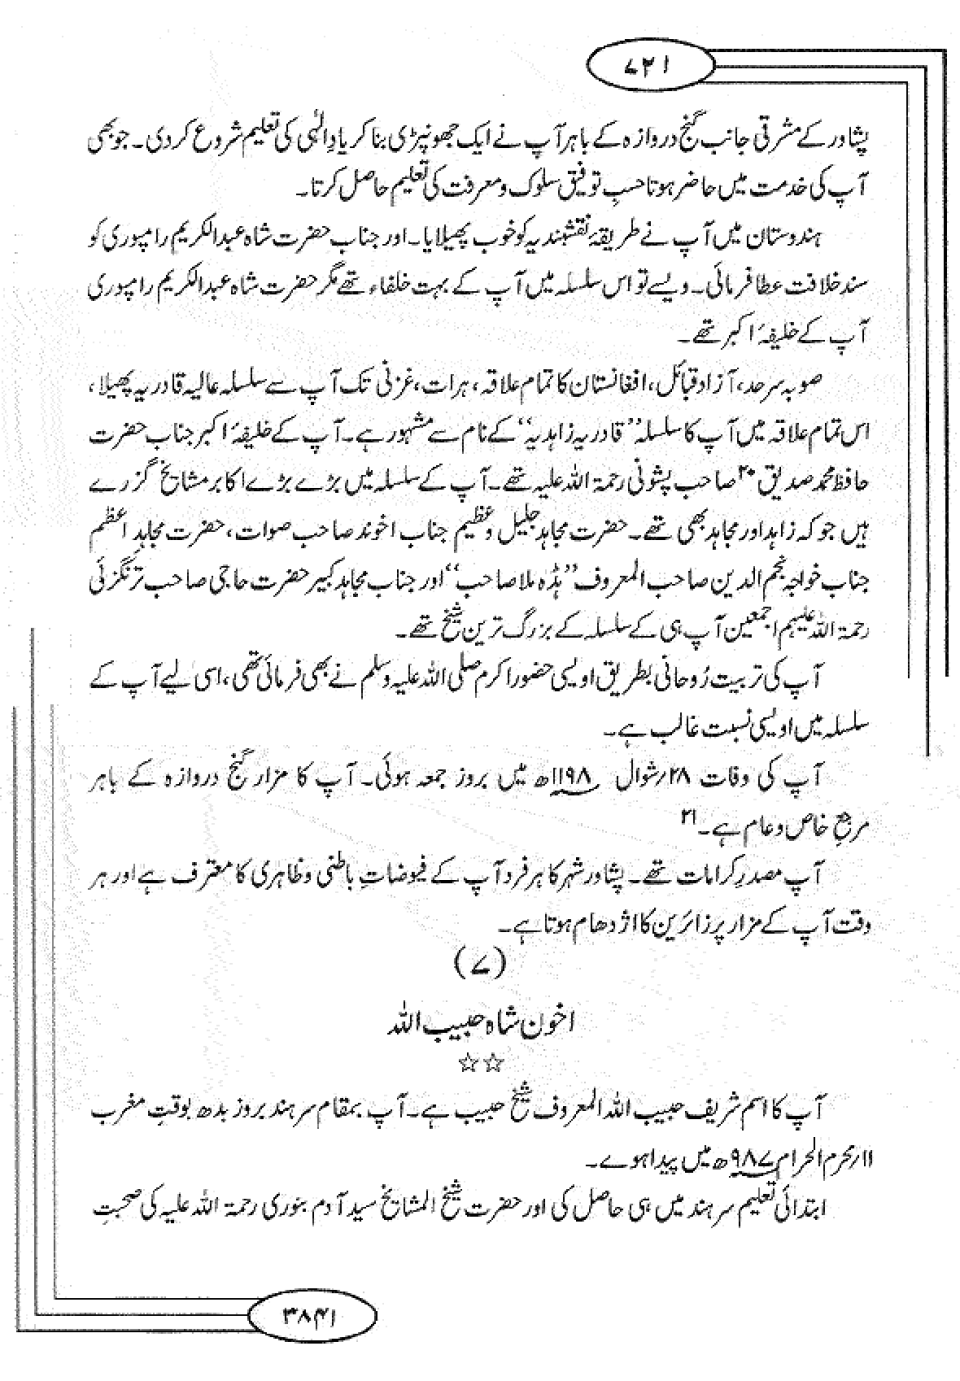 ۷۲۱
پشاور کے مشرقی جانب گنج دروازہ کے باہر آپ نے ایک جھونپڑی بنا کر یادِ الٰہی کی تعلیم شروع کر دی۔ جو بھی
آپ کی خدمت میں حاضر ہوتا حسبِ توفیق سلوک و معرفت کی تعلیم حاصل کرتا۔
ہندوستان میں آپ نے طریقۂ نقشبندیہ کو خوب پھیلایا۔ اور جناب حضرت شاہ عبدالکریم رامپوری کو
سند خلافت عطا فرمائی۔ ویسے تو اس سلسلہ میں آپ کے بہت خلفاء تھے مگر حضرت شاہ عبدالکریم رامپوری
آپ کے خلیفۂ اکبر تھے۔
صوبہ سرحد، آزاد قبائل، افغانستان کا تمام علاقہ، ہرات، غزنی تک آپ سے سلسلہ عالیہ قادریہ پھیلا،
اس تمام علاقہ میں آپ کا سلسلہ ”قادریہ زاہدیہ“ کے نام سے مشہور ہے۔ آپ کے خلیفۂ اکبر جناب حضرت
حافظ محمد صدیق ۲۰ صاحب پشونی رحمۃ اللہ علیہ تھے۔ آپ کے سلسلہ میں بڑے بڑے اکابر مشایخ گزرے
ہیں جو کہ زاہد اور مجاہد بھی تھے۔ حضرت مجاہد جلیل و عظیم جناب اخوند صاحب صوات، حضرت مجاہدِ اعظم
جناب خواجہ نجم الدین صاحب المعروف ”ہڈہ ملا صاحب“ اور جناب مجاہد کبیر حضرت حاجی صاحب ترنگزئی
رحمۃ اللہ علیہم اجمعین آپ ہی کے سلسلہ کے بزرگ ترین شیخ تھے۔
آپ کی تربیت رُوحانی بطریق اویسی حضور اکرم صلی اللہ علیہ وسلم نے بھی فرمائی تھی، اسی لیے آپ کے
سلسلہ میں اویسی نسبت غالب ہے۔
آپ کی وفات ۲۸؍شوال ۱۱۹۸ھ میں بروز جمعہ ہوئی۔ آپ کا مزار گنج دروازہ کے باہر
مرجعِ خاص و عام ہے۔۲۱
آپ مصدرِ کرامات تھے۔ پشاور شہر کا ہر فرد آپ کے فیوضاتِ باطنی و ظاہری کا معترف ہے اور ہر
وقت آپ کے مزار پر زائرین کا اژدھام ہوتا ہے۔
(۷)
اخون شاہ حبیب اللہ
☆☆
آپ کا اسم شریف حبیب اللہ المعروف شیخ حبیب ہے۔ آپ بمقام سرہند بروز بدھ بوقتِ مغرب
۱۱؍محرم الحرام ۹۸۷ھ میں پیدا ہوے۔
ابتدائی تعلیم سرہند میں ہی حاصل کی اور حضرت شیخ المشایخ سید آدم بنوری رحمۃ اللہ علیہ کی صحبتِ
۳۸۴۱